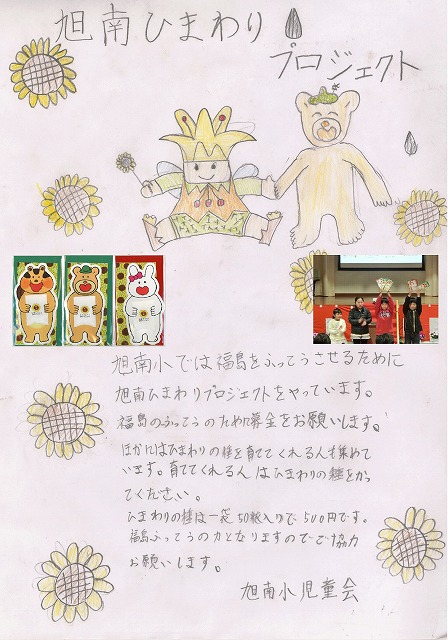 旭南ひまわり
プロジェクト
旭南小では福島をふっこうさせるために
旭南ひまわりプロジェクトをやっています。
福島のふっこうのために募金をお願いします。
ほかにはひまわりの種を育ててくれる人も集めて
います。育ててくれる人はひまわりの種をかっ
てください。
ひまわりの種は一袋50粒入りで500円です。
福島ふっこうの力となりますのでご協力
お願いします。
旭南小児童会